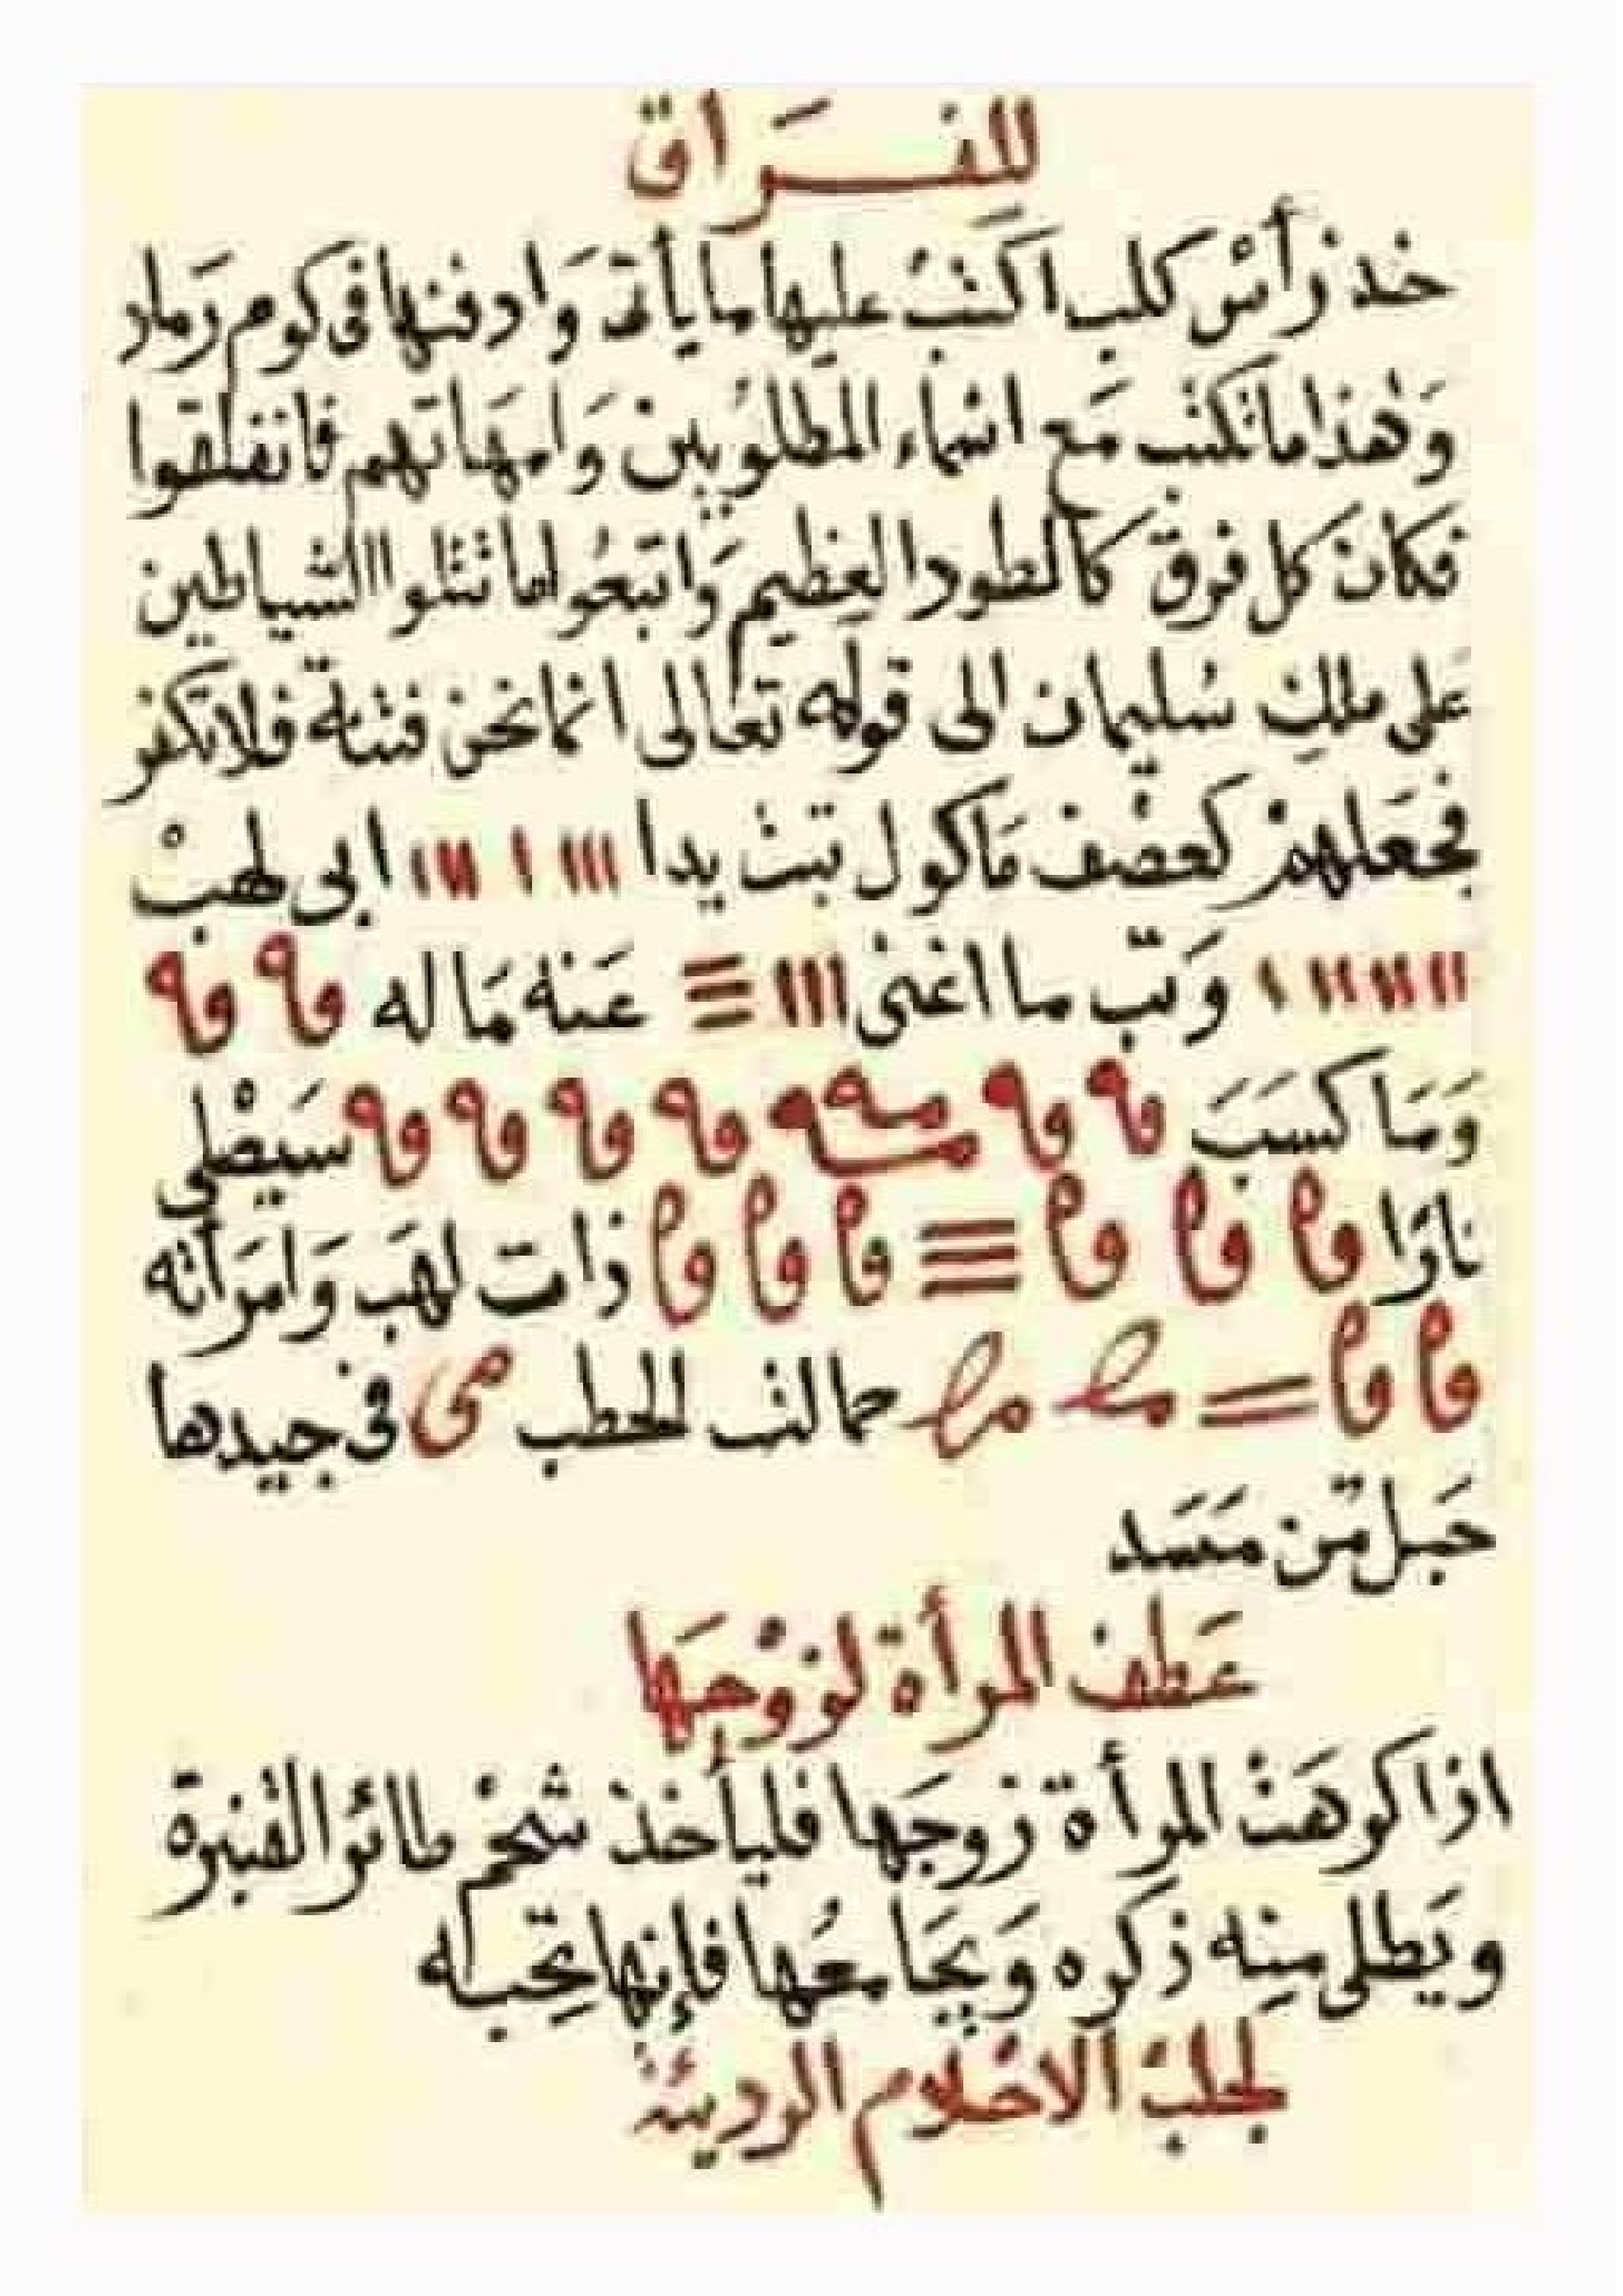 للفراق
خد رأس كلب اكتب عليها ما يأتى وادفنها فى كوم رماد
وهذا ما تكتب مع اسماء المطلوبين وامهاتهم فانفلقوا
فكان كل فرق كالطود العظيم واتبعوا ما تتلوا الشياطين
على ملك سليمان الى قوله تعالى انما نحن فتنة فلا تكفر
فجعلهم كعصف ماكول تبت يدا ااا ا اااا ابى لهب
اااااااا ا وتب ما اغنى ااا عنه ماله
وما كسب سيصلى
نارا ذات لهب وامرأته
حمالت الحطب فى جيدها
حبل من مسد
عطف المرأة لزوجها
اذا كرهت المرأة زوجها فليأخذ شحم طائر القنبرة
ويطلى منه ذكره ويجامعها فإنها تحبه
لجلب الاحلام الرديئة